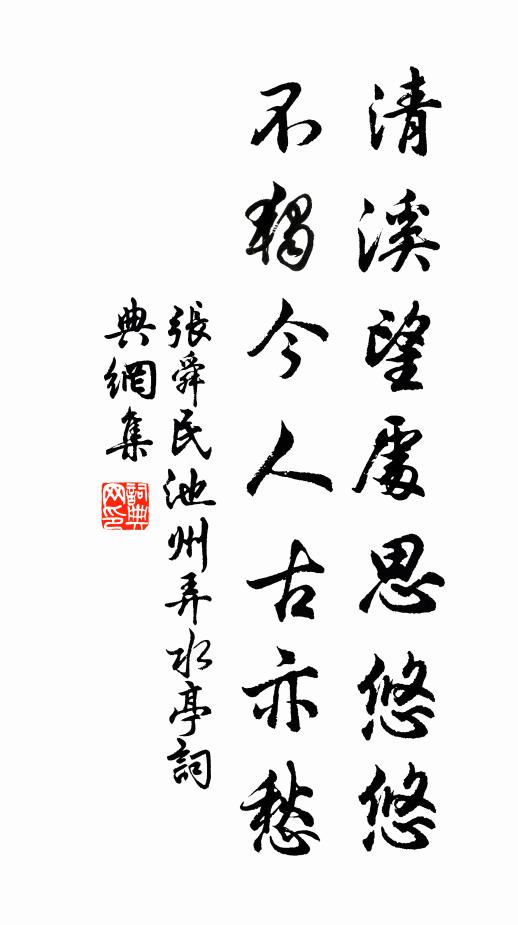 清溪望處思悠悠
不獨今人古亦愁
張舜民池州弄水亭詞
典網集
詞典網印